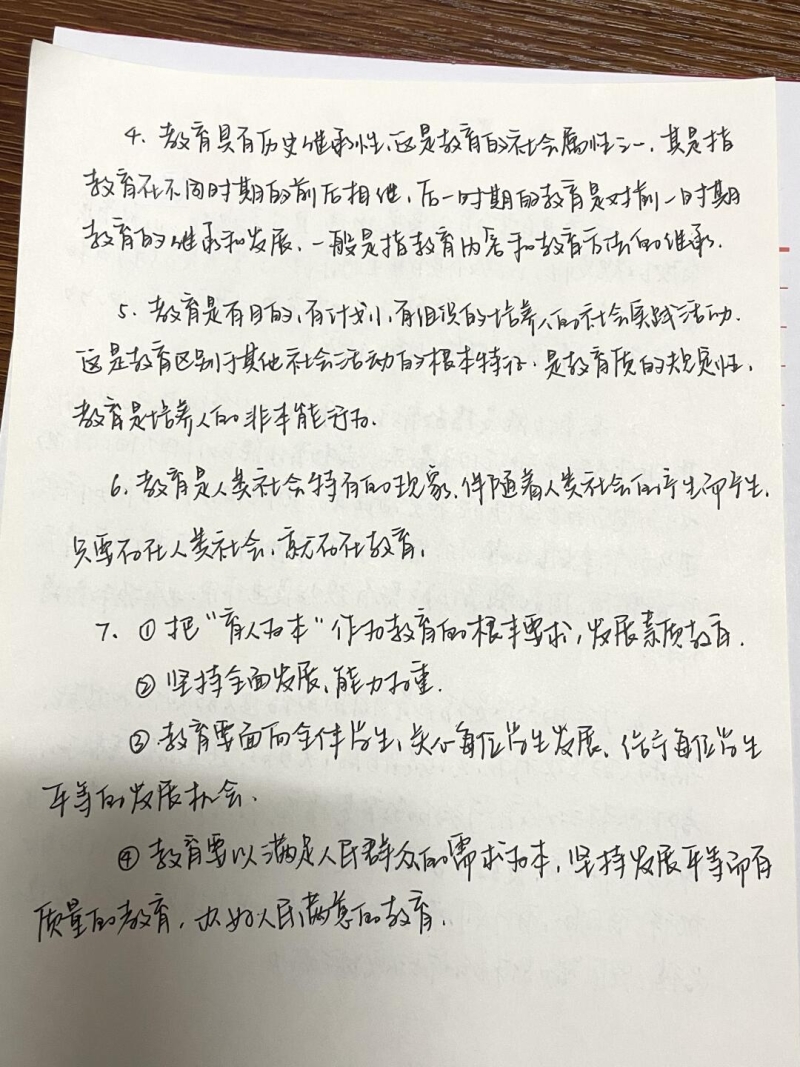 4、教育具有历史继承性,这是教育的社会属性之一,其是指
教育在不同时期的前后相继,后一时期的教育是对前一时期
教育的继承和发展、一般是指教育内容和教育方法的继承.
5、教育是有目的,有计划,有组织的培养人的社会实践活动.
这是教育区别于其他社会活动的根本特征.是教育质的规定性,
教育是培养人的非本能行为.
6、教育是人类社会特有的现象,伴随着人类社会的产生而产生.
只要存在人类社会、就存在教育.
7、①把“育人为本”作为教育的根本要求,发展素质教育.
②坚持全面发展、能力为重.
③教育要面向全体学生,关心每位学生发展、给予每位学生
平等的发展机会.
④教育要以满足人民群众的需求为本,坚持发展平等而有
质量的教育,办好人民满意的教育.